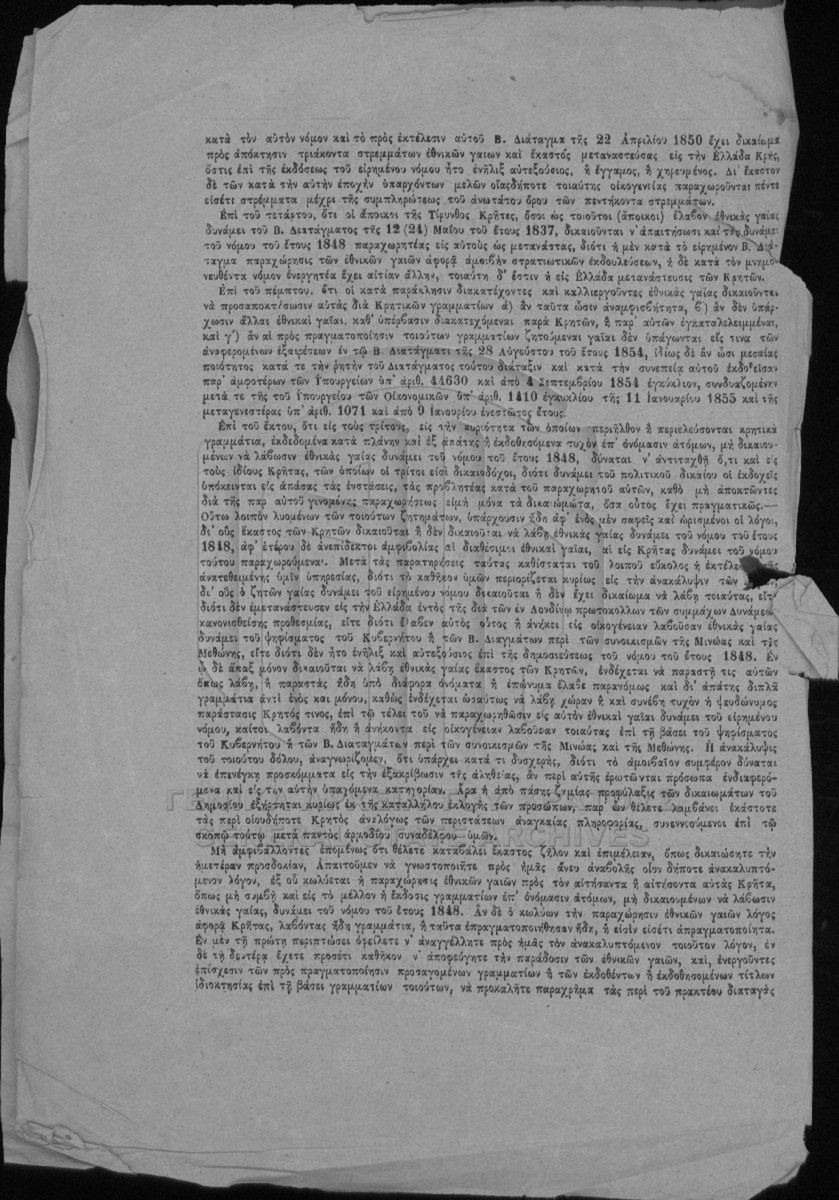 κατὰ τὸν αὐτὸν νόμον καὶ τὸ πρὸς ἐκτέλεσιν αὐτοῦ Β. Διάταγμα τῆς 22 Ἀπριλίου 1850 ἔχει δικαίωμα
πρὸς ἀπόκτησιν τριάκοντα στρεμμάτων ἐθνικῶν γαιῶν καὶ ἕκαστος μεταναστεύσας εἰς τὴν Ἑλλάδα Κρής,
ὅστις ἐπὶ τῆς ἐκδόσεως τοῦ εἰρημένου νόμου ἦτο ἐνῆλιξ αὐτεξούσιος, ἢ ἔγγαμος, ἢ χηρευμένος. Δι' ἕκαστον
δὲ τῶν κατὰ τὴν αὐτὴν ἐποχὴν ὑπαρχόντων μελῶν οἱασδήποτε τοιαύτης οἰκογενείας παραχωροῦνται πέντε
εἰσέτι στρέμματα μέχρι τῆς συμπληρώσεως τοῦ ἀνωτάτου ὅρου τῶν πεντήκοντα στρεμμάτων.
Ἐπὶ τοῦ τετάρτου, ὅτι οἱ ἄποικοι τῆς Τίρυνθος Κρῆτες, ὅσοι ὡς τοιοῦτοι (ἄποικοι) ἔλαβον ἐθνικὰς γαίας
δυνάμει τοῦ Β. Διατάγματος τῆς 12 (24) Μαΐου τοῦ ἔτους 1837, δικαιοῦνται ν' ἀπαιτήσωσι καὶ τὰς δυνάμει
τοῦ νόμου τοῦ ἔτους 1848 παραχωρητέας εἰς αὐτοὺς ὡς μετανάστας, διότι ἡ μὲν κατὰ τὸ εἰρημένον Β. Διά-
ταγμα παραχώρησις τῶν ἐθνικῶν γαιῶν ἀφορᾷ ἀμοιβὴν στρατιωτικῶν ἐκδουλεύσεων, ἡ δὲ κατὰ τὸν μνημο-
νευθέντα νόμον ἐνεργητέα ἔχει αἰτίαν ἄλλην, τοιαύτη δ' ἔστιν ἡ εἰς Ἑλλάδα μετανάστευσις τῶν Κρητῶν.
Ἐπὶ τοῦ πέμπτου, ὅτι οἱ κατὰ παράκλησιν διακατέχοντες καὶ καλλιεργοῦντες ἐθνικὰς γαίας δικαιοῦνται
νὰ προσαποκτήσωσιν αὐτὰς διὰ Κρητικῶν γραμματίων ά) ἂν ταῦτα ὦσιν ἀναμφισβήτητα, β') ἂν δὲν ὑπάρ-
χωσιν ἄλλαι ἐθνικαὶ γαῖαι, καθ' ὑπέρβασιν διακατεχόμεναι παρὰ Κρητῶν, ἢ παρ' αὐτῶν ἐγκαταλελειμμέναι,
καὶ γ') ἂν αἱ πρὸς πραγματοποίησιν τοιούτων γραμματίων ζητούμεναι γαῖαι δὲν ὑπάγωνται εἴς τινα τῶν
ἀναφερομένων ἐξαιρέσεων ἐν τῷ Β. Διατάγματι τῆς 28 Αὐγούστου τοῦ ἔτους 1854, ἰδίως δὲ ἂν ὦσι μεσαίας
ποιότητος κατά τε τὴν ῥητὴν τοῦ Διατάγματος τούτου διάταξιν καὶ κατὰ τὴν συνεπείᾳ αὐτοῦ ἐκδοθεῖσαν
παρ' ἀμφοτέρων τῶν Ὑπουργείων ὑπ' ἀριθ. 44630 καὶ ἀπὸ 4 Σεπτεμβρίου 1854 ἐγκύκλιον, συνδυαζομένην
μετά τε τῆς τοῦ Ὑπουργείου τῶν Οἰκονομικῶν ὑπ' ἀριθ. 1410 ἐγκυκλίου τῆς 11 Ἰανουαρίου 1855 καὶ τῆς
μεταγενεστέρας ὑπ' ἀριθ. 1071 καὶ ἀπὸ 9 Ἰανουρίου ἐνεστῶτος ἔτους.
Ἐπὶ τοῦ ἕκτου, ὅτι εἰς τοὺς τρίτους, εἰς τὴν κυριότητα τῶν ὁποίων περιῆλθον ἢ περιελεύσονται κρητικὰ
γραμμάτια, ἐκδεδομένα κατὰ πλάνην καὶ ἐξ ἀπάτης ἢ ἐκδοθησόμενα τυχὸν ἐπ' ὀνόμασιν ἀτόμων, μὴ δικαιου-
μένων νὰ λάβωσιν ἐθνικὰς γαίας δυνάμει τοῦ νόμου τοῦ ἔτους 1848, δύναται ν' ἀντιταχθῇ ὅ,τι καὶ εἰς
τοὺς ἰδίους Κρῆτας, τῶν ὁποίων οἱ τρίτοι εἰσὶ δικαιοδόχοι, διότι δυνάμει τοῦ πολιτικοῦ δικαίου οἱ ἐκδοχεῖς
ὑπόκεινται εἰς ἁπάσας τὰς ἐνστάσεις, τὰς προβλητέας κατὰ τοῦ παραχωρητοῦ αὐτῶν, καθὸ μὴ ἀποκτῶντες
διὰ τῆς παρ' αὐτοῦ γινομένης παραχωρήσεως εἰμὴ μόνα τὰ δικαιώματα, ὅσα οὗτος ἔχει πραγματικῶς.—
Οὕτω λοιπὸν λυομένων τῶν τοιούτων ζητημάτων, ὑπάρχουσιν ἤδη ἀφ' ἑνὸς μὲν σαφεῖς καὶ ὡρισμένοι οἱ λόγοι,
δι' οὓς ἕκαστος τῶν Κρητῶν δικαιοῦται ἢ δὲν δικαιοῦται νὰ λάβῃ ἐθνικὰς γαίας δυνάμει τοῦ νόμου τοῦ ἔτους
1848, ἀφ' ἑτέρου δὲ ἀνεπίδεκτοι ἀμφιβολίας αἱ διαθέσιμοι ἐθνικαὶ γαῖαι, αἱ εἰς Κρῆτας δυνάμει τοῦ νόμου
τούτου παραχωρούμεναι. Μετὰ τὰς παρατηρήσεις ταύτας καθίσταται τοῦ λοιποῦ εὔκολος ἡ ἐκτέλεσις τῆς
ἀνατεθειμένης ὑμῖν ὑπηρεσίας, διότι τὸ καθῆκον ὑμῶν περιορίζεται κυρίως εἰς τὴν ἀνακάλυψιν τῶν
δι' οὓς ὁ ζητῶν γαίας δυνάμει τοῦ εἰρημένου νόμου δικαιοῦται ἢ δὲν ἔχει δικαίωμα νὰ λάβῃ τοιαύτας, εἴτε
διότι δὲν ἐμετανάστευσεν εἰς τὴν Ἑλλάδα ἐντὸς τῆς διὰ τῶν ἐν Λονδίνῳ πρωτοκόλλων τῶν συμμάχων Δυνάμεων
κανονισθείσης προθεσμίας, εἴτε διότι ἔλαβεν αὐτὸς οὗτος ἢ ἀνήκει εἰς οἰκογένειαν λαβοῦσαν ἐθνικὰς γαίας
δυνάμει τοῦ ψηφίσματος τοῦ Κυβερνήτου ἢ τῶν Β. Διαγμάτων περὶ τῶν συνοικισμῶν τῆς Μινώας καὶ τῆς
Μεθώνης, εἴτε διότι δὲν ἦτο ἐνῆλιξ καὶ αὐτεξούσιος ἐπὶ τῆς δημοσιεύσεως τοῦ νόμου τοῦ ἔτους 1848. Ἐν
ᾧ δὲ ἅπαξ μόνον δικαιοῦται νὰ λάβῃ ἐθνικὰς γαίας ἕκαστος τῶν Κρητῶν, ἐνδέχεται νὰ παραστῇ τις αὐτῶν
ὅπως λάβῃ, ἢ παραστὰς ἤδη ὑπὸ διάφορα ὀνόματα ἢ ἐπώνυμα ἔλαβε παρανόμως καὶ δι' ἀπάτης διπλᾶ
γραμμάτια ἀντὶ ἑνὸς καὶ μόνου, καθὼς ἐνδέχεται ὡσαύτως νὰ λάβῃ χώραν ἢ καὶ συνέβη τυχὸν ἡ ψευδώνυμος
παράστασις Κρητός τινος, ἐπὶ τῷ τέλει τοῦ νὰ παραχωρηθῶσιν εἰς αὐτὸν ἐθνικαὶ γαῖαι δυνάμει τοῦ εἰρημένου
νόμου, καίτοι λαβόντα ἤδη ἢ ἀνήκοντα εἰς οἰκογένειαν λαβοῦσαν τοιαύτας ἐπὶ τῇ βάσει τοῦ ψηφίσματος
τοῦ Κυβερνήτου ἢ τῶν Β. Διαταγμάτων περὶ τῶν συνοικισμῶν τῆς Μινώας καὶ τῆς Μεθώνης. Ἡ ἀνακάλυψις
τοῦ τοιούτου δόλου, ἀναγνωρίζομεν, ὅτι ὑπάρχει κατά τι δυσχερής, διότι τὸ ἀμοιβαῖον συμφέρον δύναται
νὰ ἐπενέγκῃ προσκόμματα εἰς τὴν ἐξακρίβωσιν τῆς ἀληθείας, ἂν περὶ αὐτῆς ἐρωτῶνται πρόσωπα ἐνδιαφερό-
μενα καὶ εἰς τὴν αὐτὴν ὑπαγόμενα κατηγορίαν. Ἄρα ἡ ἀπὸ πάσης ζημίας προφύλαξις τῶν δικαιωμάτων τοῦ
Δημοσίου ἐξήρτηται κυρίως ἐκ τῆς καταλλήλου ἐκλογῆς τῶν προσώπων, παρ' ὧν θέλετε λαμβάνει ἑκάστοτε
τὰς περὶ οἱουδήποτε Κρητὸς ἀναλόγως τῶν περιστάσεων ἀναγκαίας πληροφορίας, συνεννοούμενοι ἐπὶ τῷ
σκοπῷ τούτῳ μετὰ παντὸς ἁρμοδίου συναδέλφου ὑμῶν.
Μὴ ἀμφιβάλλοντες ἑπομένως ὅτι θέλετε καταβάλει ἕκαστος ζῆλον καὶ ἐπιμέλειαν, ὅπως δικαιώσητε τὴν
ἡμετέραν προσδοκίαν, Ἀπαιτοῦμεν νὰ γνωστοποιῆτε πρὸς ἡμᾶς ἄνευ ἀναβολῆς οἷον δήποτε ἀνακαλυπτό-
μενον λόγον, ἐξ οὗ κωλύεται ἡ παραχώρησις ἐθνικῶν γαιῶν πρὸς τὸν αἰτήσαντα ἢ αἰτήσοντα αὐτὰς Κρῆτα,
ὅπως μὴ συμβῇ καὶ εἰς τὸ μέλλον ἡ ἔκδοσις γραμματίων ἐπ' ὀνόμασιν ἀτόμων, μὴ δικαιουμένων νὰ λάβωσιν
ἐθνικὰς γαίας, δυνάμει τοῦ νόμου τοῦ ἔτους 1848. Ἂν δὲ ὁ κωλύων τὴν παραχώρησιν ἐθνικῶν γαιῶν λόγος
ἀφορᾷ Κρῆτας, λαβόντας ἤδη γραμμάτια, ἢ ταῦτα ἐπραγματοποιήθησαν ἤδη, ἢ εἰσὶν εἰσέτι ἀπραγματοποίητα.
Ἐν μὲν τῇ πρώτῃ περιπτώσει ὀφείλετε ν' ἀναγγέλλητε πρὸς ἡμᾶς τὸν ἀνακαλυπτόμενον τοιοῦτον λόγον, ἐν
δὲ τῇ δευτέρᾳ ἔχετε προσέτι καθῆκον ν' ἀποφεύγητε τὴν παράδοσιν τῶν ἐθνικῶν γαιῶν, καὶ, ἐνεργοῦντες
ἐπίσχεσιν τῶν πρὸς πραγματοποίησιν προσαγομένων γραμματίων ἢ τῶν ἐκδοθέντων ἢ ἐκδοθησομένων τίτλων
ἰδιοκτησίας ἐπὶ τῇ βάσει γραμματίων τοιούτων, νὰ προκαλῆτε παραχρῆμα τὰς περὶ τοῦ πρακτέου διαταγὰς